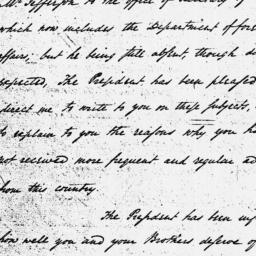 Mr. Jefferson to the office of
which now includes the Department of fore
affairs, but he being still absent, though da
expected, The President has been pleased
direct me to write to you on these subjects,
to explain to you the reasons why you ha
not received more frequent and regular ad
from this country
The President has been
how well you and your Brothers deserve of